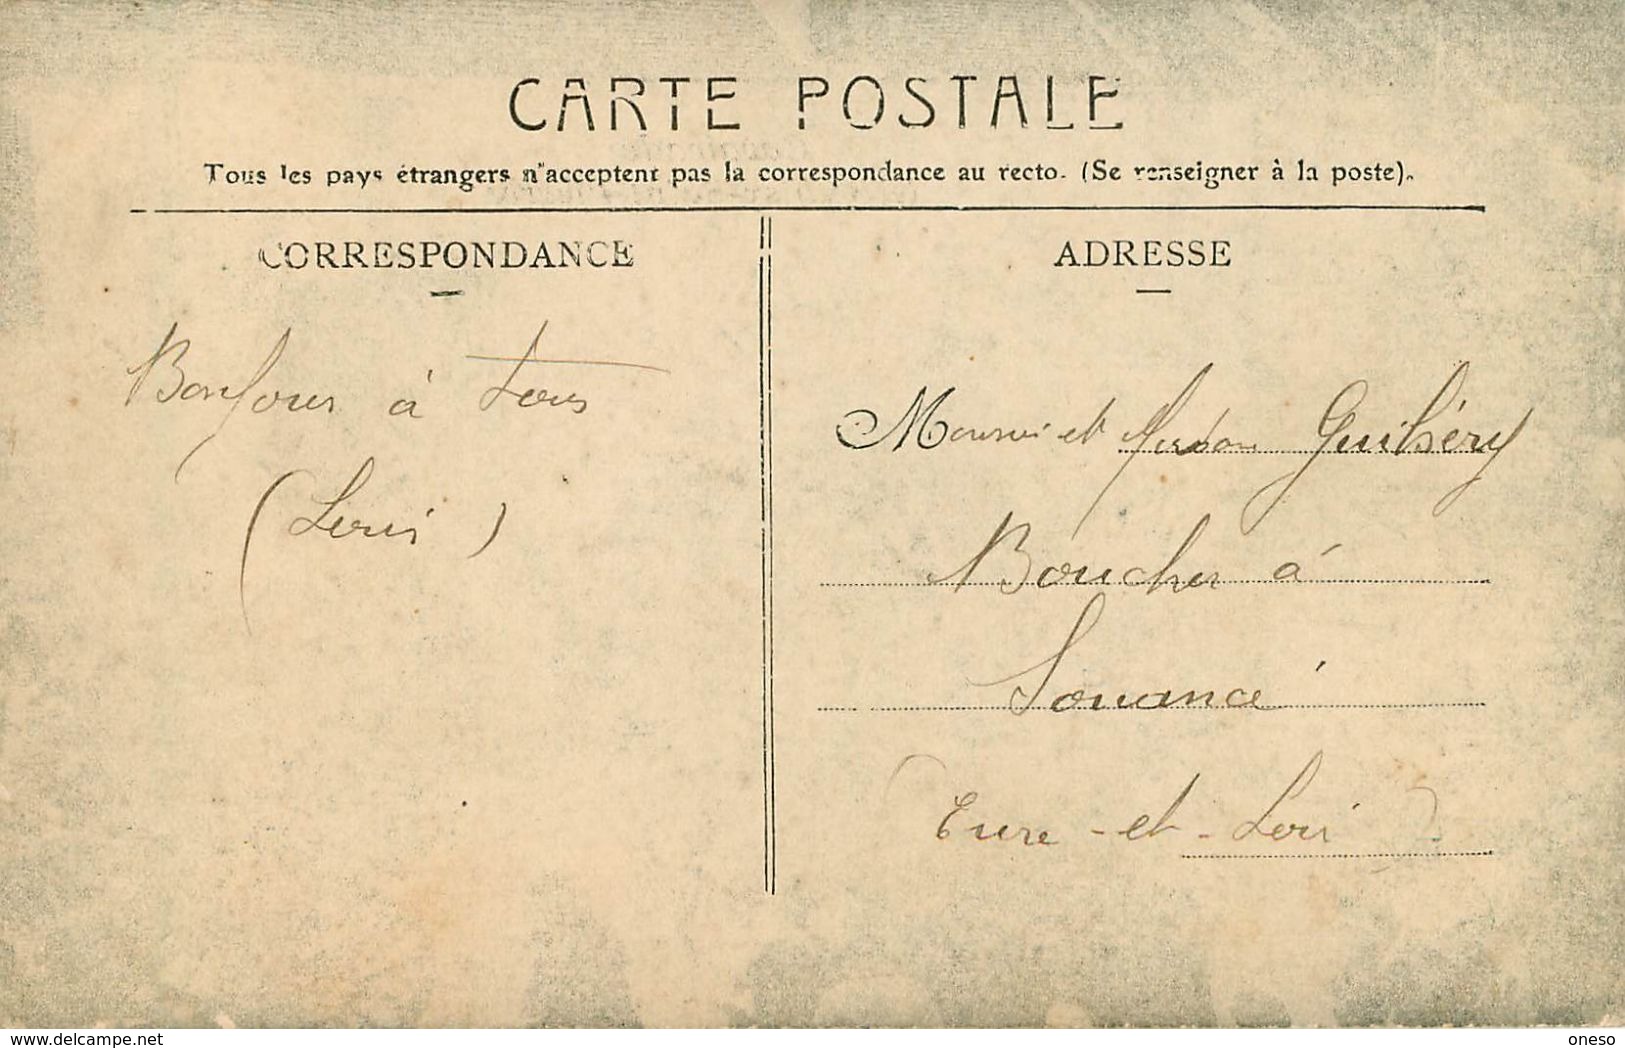 CARTE POSTALE
Tous les pays étrangers n'acceptent pas la correspondance au recto. (Se renseigner à la poste).
CORRESPONDANCE
ADRESSE
Bonjour à tous
(Louis)
Monsieur et Madame Guibéry
Boucher à
Souancé
(Eure-et-Loir)
www.delcampe.net
oneso